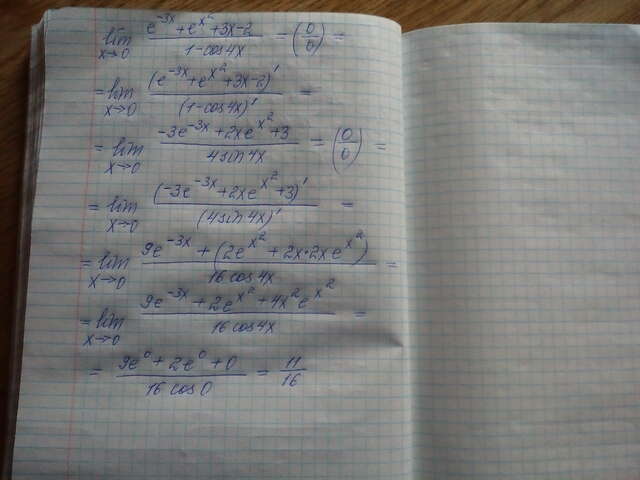 lim x→0 (e^(-3x) + e^(x²) + 3x - 2)/(1 - cos4x) = (0/0) =
= lim x→0 (e^(-3x) + e^(x²) + 3x - 2)'/(1 - cos4x)' =
= lim x→0 (-3e^(-3x) + 2xe^(x²) + 3)/(4sin4x) = (0/0) =
= lim x→0 (-3e^(-3x) + 2xe^(x²) + 3)'/(4sin4x)' =
= lim x→0 (9e^(-3x) + (2e^(x²) + 2x·2xe^(x²)))/(16cos4x) =
= lim x→0 (9e^(-3x) + 2e^(x²) + 4x²e^(x²))/(16cos4x) =
= (9e⁰ + 2e⁰ + 0)/(16cos0) = 11/16